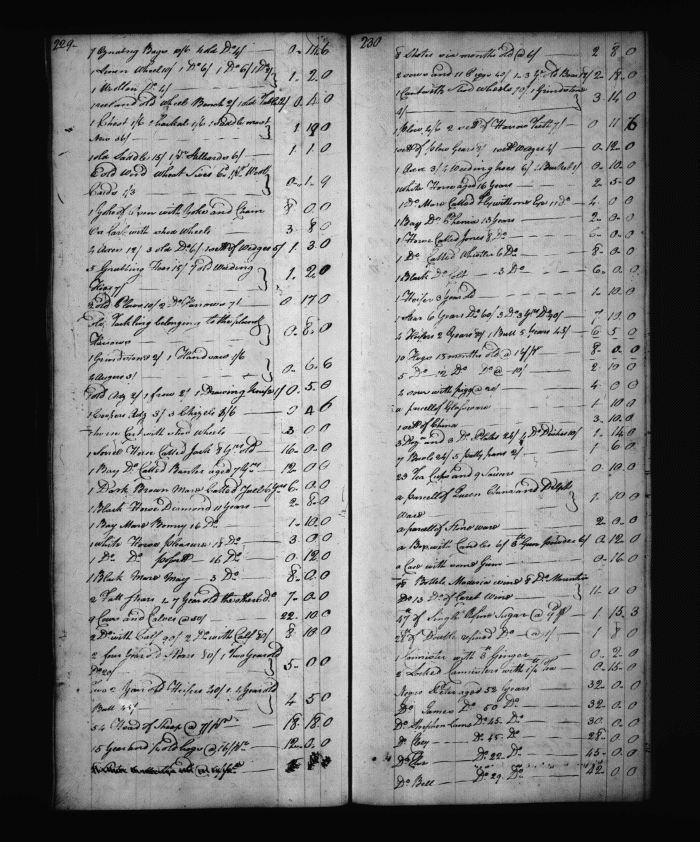 229
7 Bags 10/6 4 old Do. 4/ 0. 14. 6
1 Linen Wheel 10/ 1 Do. 6/ 1 Do. 5/ 1 Do.
1 Woollen Do. 4/ 1. 2. 0
old Wheel Bench 2/ 1 old Table 2/
1 Chest 1/6 1/6 1 Saddle most
New 36/ 1 19 0
1 old Saddle 15/ 1 pr. Stilliards 6/ 1 1 0
old Wheat 6d. pr. Wool
Cards 1/3 0. 1. 9
1 Yoke of Oxen with Yoke and Chain 8 0 0
Ox Cart with Wheels 3. 8 0
4 Axes 12/ 3 old Do. 6/ of Wedges 5/ 1. 3 0
5 Grubing Hoes 15/ 7 old Weeding
Hoes 7/ 1. 2. 0
old Plows 10/ 2 Do. Harrows 7/ 0 17 0
old Tackling belonging to the plows
Harrows 0. 8. 0
1 Grindstone 2/ 1 Hand saw 1/6
Augers 3/ 0. 6. 6
old Adz 2/ 1 saw 2/ 1 Drawing knife 1/ 0. 5. 0
1 Coopers Adz 3/ 3 Chizels 0 4 6
Cart with Wheels 3 0 0
1 Sorrel Horse Called Jack 8 Yrs. old 16. 0. 0
1 Bay Do. Called Banter aged 7 Yrs. 12 0 0
1 Dark Brown Mare Called 6. 0. 0
1 Black Horse Diamond 11 Years 2. 8. 0
1 Bay Mare Bonny 16 Do. 1. 10. 0
1 White Horse pleasure 18 Do. 3 0 0
1 Do. Do. 16 Do. 0. 12. 0
1 Black Mare May 3 Do. 8. 0. 0
2 Fall 2 7 Year old the other Do. 7. 0. 0
9 Cows and Calves @ 50/ 22. 10. 0
2 Do. with Calf 90/ 2 Do. with Calf 80/ 8. 10 0
2 four Year old Steers 80/ 1 Two Year old
Do. 20/ 5. 0 0
Two 2 Year old Heifers 40/ 1 Year old
Bull 45/ 4 5 0
54 Head of Sheep @ 7/ 18. 18. 0
15 Year old hogs @ 16/ 12. 0. 0
230
8 Shotes six months old @ 6/ 2 8 0
2 sows and 11 Pigs 40/ 2. 18. 0
Cartwith Wheels 70/ 1 Grindstone
4/ 3. 14. 0
1 Plow 4/6 2 sett of Harrow Teeth 7/ 0 11 6
sett of plow Gears 2/ Wedges 4/ 0. 12. 0
1 Axe 3/ 4 Weeding hoes 6/ 0. 10. 0
White Horse aged 16 Years 2. 5. 0
1 Do. Mare Called Fly with one Eye 11 Do. 4. 0 0
1 Bay Do. Phenix 13 Years 2. 0. 0
1 Horse Called Jones 8 Do. 6. 0. 0
1 Do. Called Whistle 6 Do. 8. 0. 0
1 Black Do. Colt 3 Do. 6. 0. 0
1 Heifer 3 Years old 1. 10. 0
1 Steer 6 Years Do. 60/ 3 Do. 3 Yrs. Do. 30/ 7 10. 0
4 Heifers 2 Years 20/ 1 Bull 5 Years 45/ 6 5 0
10 Hogs 18 months old @ 16/ 8. 0. 0
5 Do. 12 Do. Do. @ 10/ 2 10 0
4 sows with pigs @ 20/ 4 0 0
a parcell of Glassware 1 10 0
sett of China 3. 10. 0
3 and 3 Do. Plates 24/ 4 Do. Dishes 10/ 1. 14. 0
7 Bowls 24/ 5 patty pans 2/ 1. 6 0
23 Tea Cups and 9 Saucers 0 10. 0
a parcell of Queen China and Delph
ware 1. 10 0
a parcell of Stone ware 2. 0. 0
a Box with Candles 6/ Gun powder 6/ 0 12. 0
a Case with some Gin 0. 16. 0
78 Bottle Madeira wine 8 Do. Mountain
Do. 13 Do. of Caret Wine 11. 0 0
47 lb. of Single Refine Sugar @ 1 15. 3
28 lb. of Double refined Do. @ 1/ 1 8 0
1 Cannister with lb. Ginger 0. 2. 0
2 Locked Cannisters with 1 1/4 Tea 0. 15. 0
Negro Peter aged 52 Years 32. 0. 0
Do. James Do. 50 Do. 32. 0. 0
Do. Stephen Lame Do. 45. Do. 30. 0 0
Do. Coy Do. 45. Do. 28. 0 0
Do. Do. 22. Do. 45. 0. 0
Do. Bell Do. 29. Do. 42. 0 0